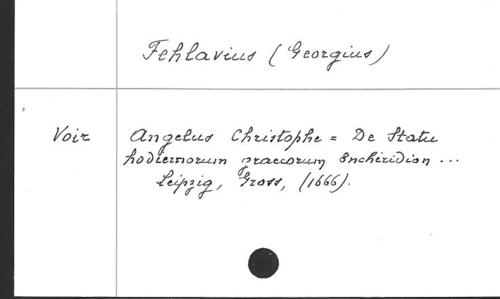 Fehlavius (Georgius)
Voir Angelus Christophe = De Statu
hodiernorum graecorum Enchiridion ...
Leipzig, Gross, (1666).